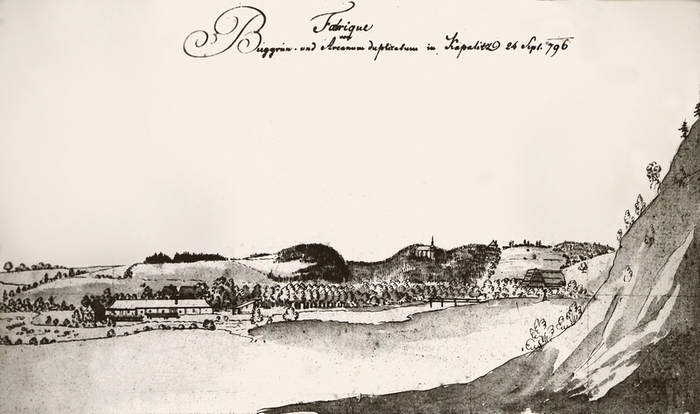 Fabrique
von
Berggrün- und Arcanum duplicatum in Kapalitz 24 Sept. 796